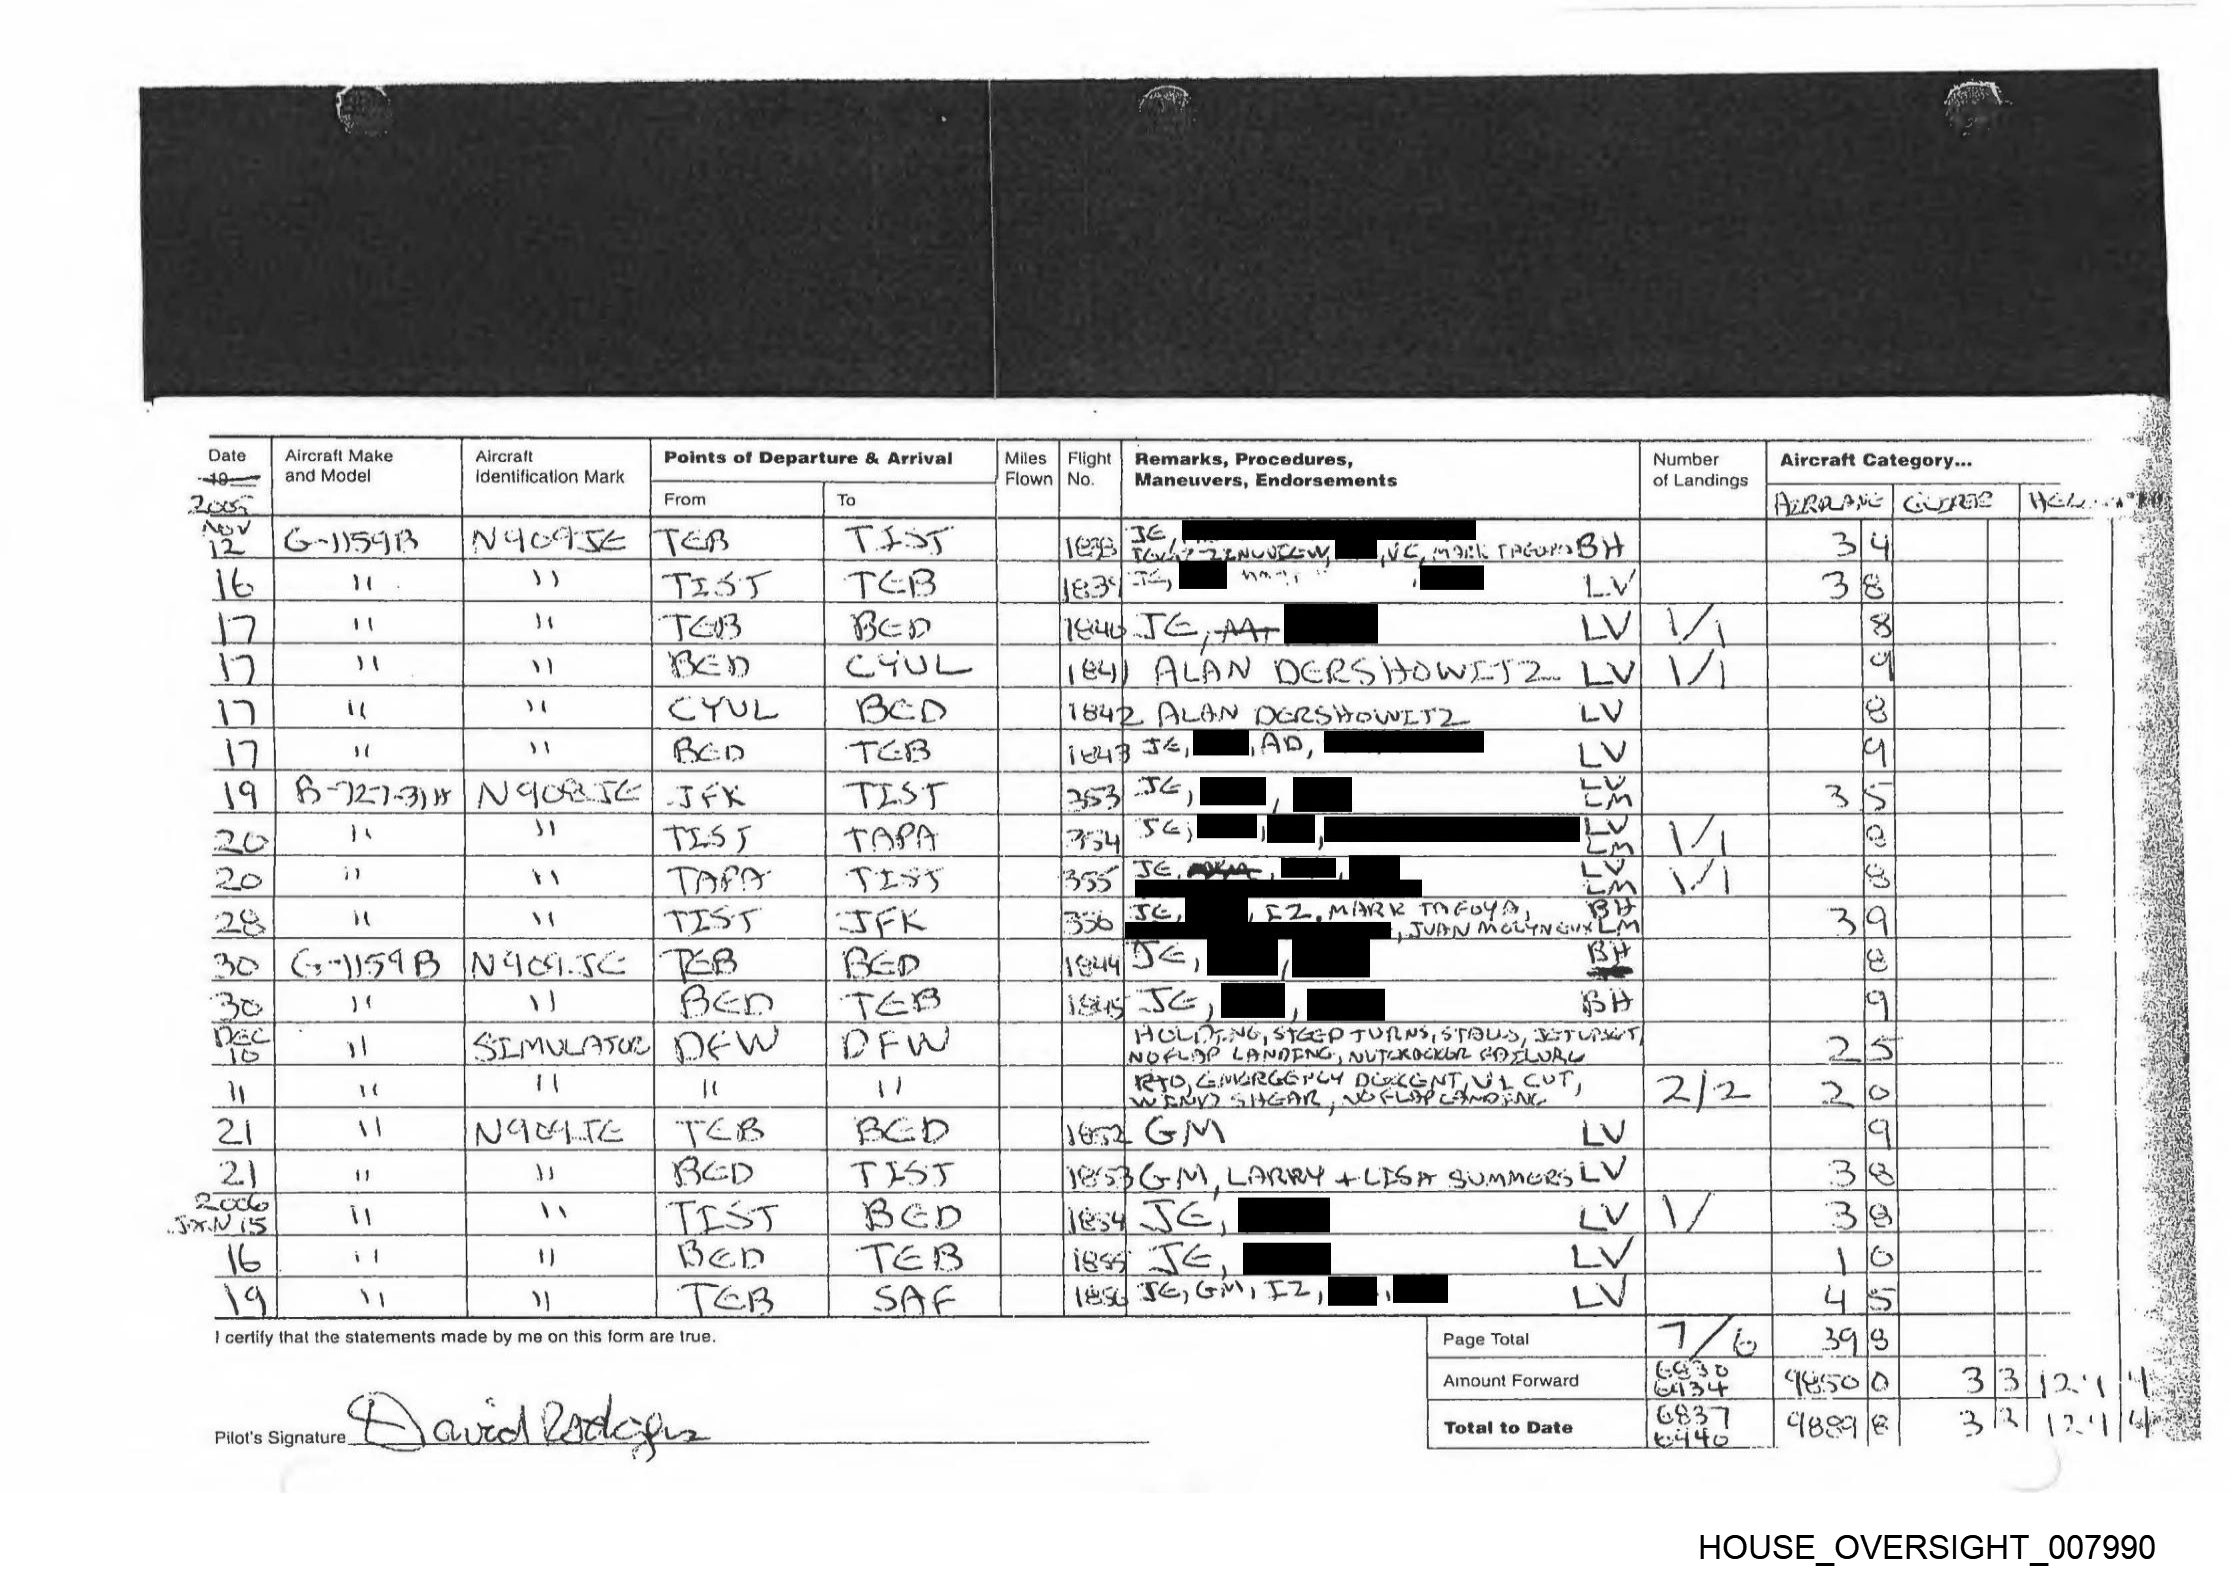 Date Aircraft Make Aircraft Points of Departure & Arrival Miles Flight Remarks, Procedures, Number Aircraft Category...
19 and Model Identification Mark From To Flown No. Maneuvers, Endorsements of Landings
2005 AIRPLANE
NOV 12 G-1159B N909JE TEB TIST JE, BH 3 4
, MARK
16 " " TIST TEB 1839 JE, , LV 3 8
17 " " TEB BED 1840 JE, LV 1/1 8
17 " " BED CYUL 1841 ALAN DERSHOWITZ LV 1/1 9
17 " " CYUL BED 1842 ALAN DERSHOWITZ LV 8
17 " " BED TEB 1843 JE, , AD, LV 9
19 B-727-31H N908JE JFK TIST 353 JE, , LV LM 3 5
20 " " TIST TAPA 354 JE, , , LV LM 1/1 8
20 " " TAPA TIST 355 JE, , , LV LM 1/1 8
28 " " TIST JFK 356 JE, , IZ, MARK TAFOYA, BH 3 9
, JUAN MOLYNEUX LM
30 G-1159B N909JE TEB BED 1844 JE, , BH 8
30 " " BED TEB 1845 JE, , BH 9
DEC 10 " SIMULATOR DFW DFW HOLDING, STEEP TURNS, STALLS, JET UPSET, 2 5
NO FLAP LANDING, NUTCRACKER FAILURE
11 " " " " RTO, EMERGENCY DESCENT, V1 CUT, 2/2 2 0
WIND SHEAR, NO FLAP LANDING
21 " N909JE TEB BED 1852 GM LV 9
21 " " BED TIST 1853 GM, LARRY + LISA SUMMERS LV 3 8
2006
JAN 15 " " TIST BED 1854 JE, LV 1/ 3 8
16 " " BED TEB 1855 JE, LV 1 0
19 " " TEB SAF 1856 JE, GM, IZ, , LV 4 5
I certify that the statements made by me on this form are true.
Page Total 7/6 39 8
Amount Forward 6830 6434 9850 0 3 3
Pilot's Signature David Rodgers
Total to Date 6837 6440 9889 8 3 3
HOUSE_OVERSIGHT_007990